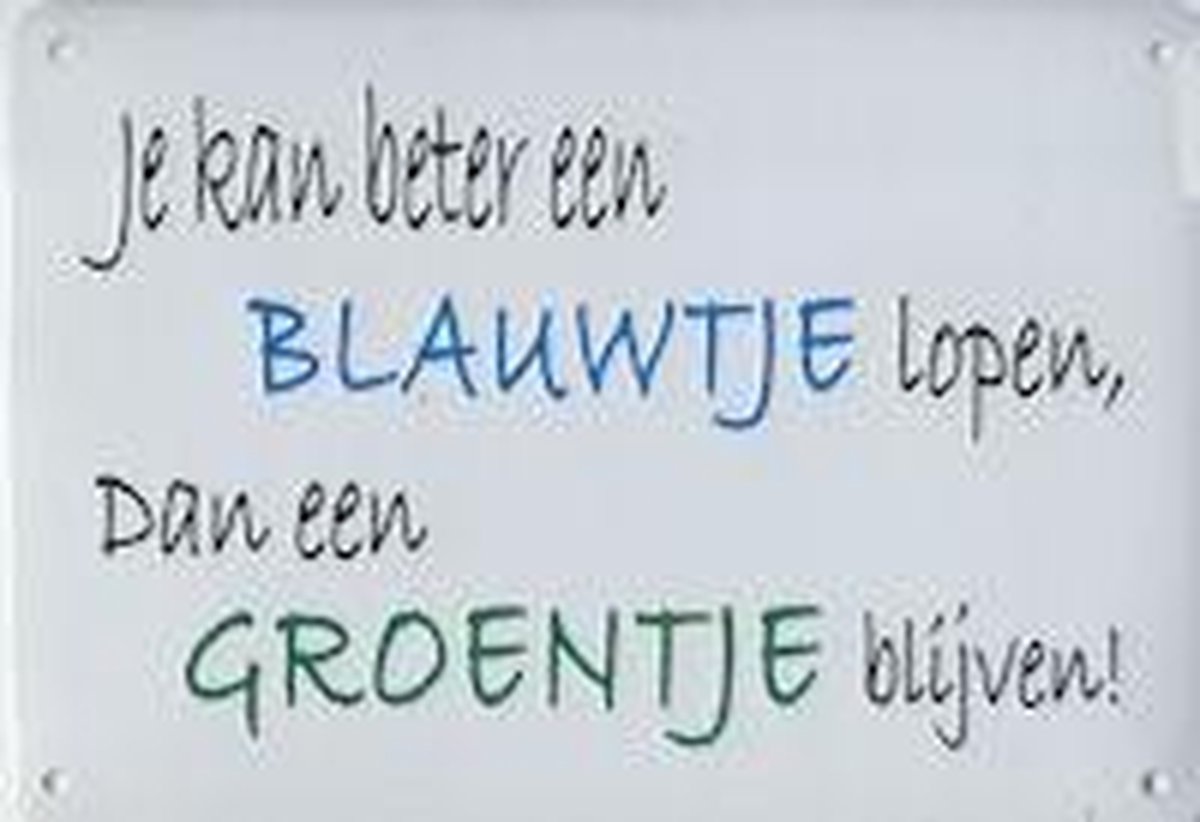 Je kan beter een
BLAUWTJE lopen,
Dan een
GROENTJE blijven!